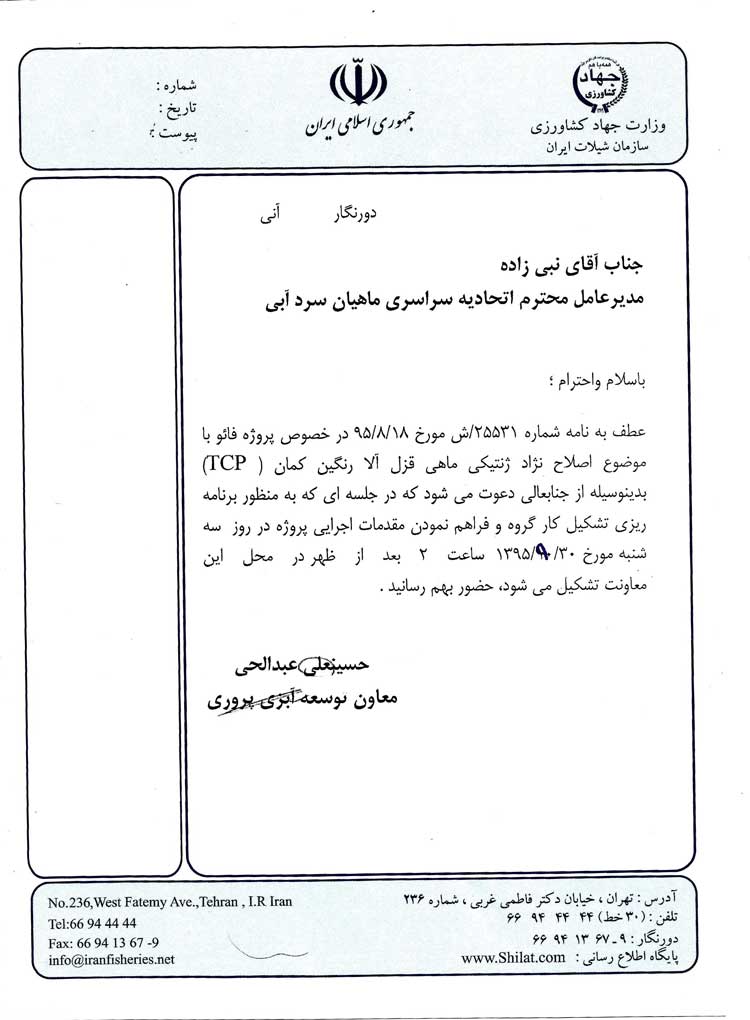 همه با هم
جهاد
کشاورزی
وزارت جهاد کشاورزی
سازمان شیلات ایران
جمهوری اسلامی ایران
شماره :
تاریخ :
پیوست :
دورنگار آنی
جناب آقای نبی زاده
مدیرعامل محترم اتحادیه سراسری ماهیان سرد آبی
باسلام واحترام ؛
عطف به نامه شماره ۲۵۵۳۱/ش مورخ ۹۵/۸/۱۸ در خصوص پروژه فائو با
موضوع اصلاح نژاد ژنتیکی ماهی قزل آلا رنگین کمان ( TCP)
بدینوسیله از جنابعالی دعوت می شود که در جلسه ای که به منظور برنامه
ریزی تشکیل کار گروه و فراهم نمودن مقدمات اجرایی پروژه در روز سه
شنبه مورخ ۱۳۹۵/۹/۳۰ ساعت ۲ بعد از ظهر در محل این
معاونت تشکیل می شود، حضور بهم رسانید .
حسینعلی عبدالحی
معاون توسعه آبزی پروری
آدرس : تهران ، خیابان دکتر فاطمی غربی ، شماره ۲۳۶
تلفن : (۳۰ خط) ۴۴ ۴۴ ۹۴ ۶۶
دورنگار : ۹ـ ۶۷ ۱۳ ۹۴ ۶۶
پایگاه اطلاع رسانی : www.Shilat.com
No.236,West Fatemy Ave.,Tehran , I.R Iran
Tel:66 94 44 44
Fax: 66 94 13 67 -9
info@iranfisheries.net